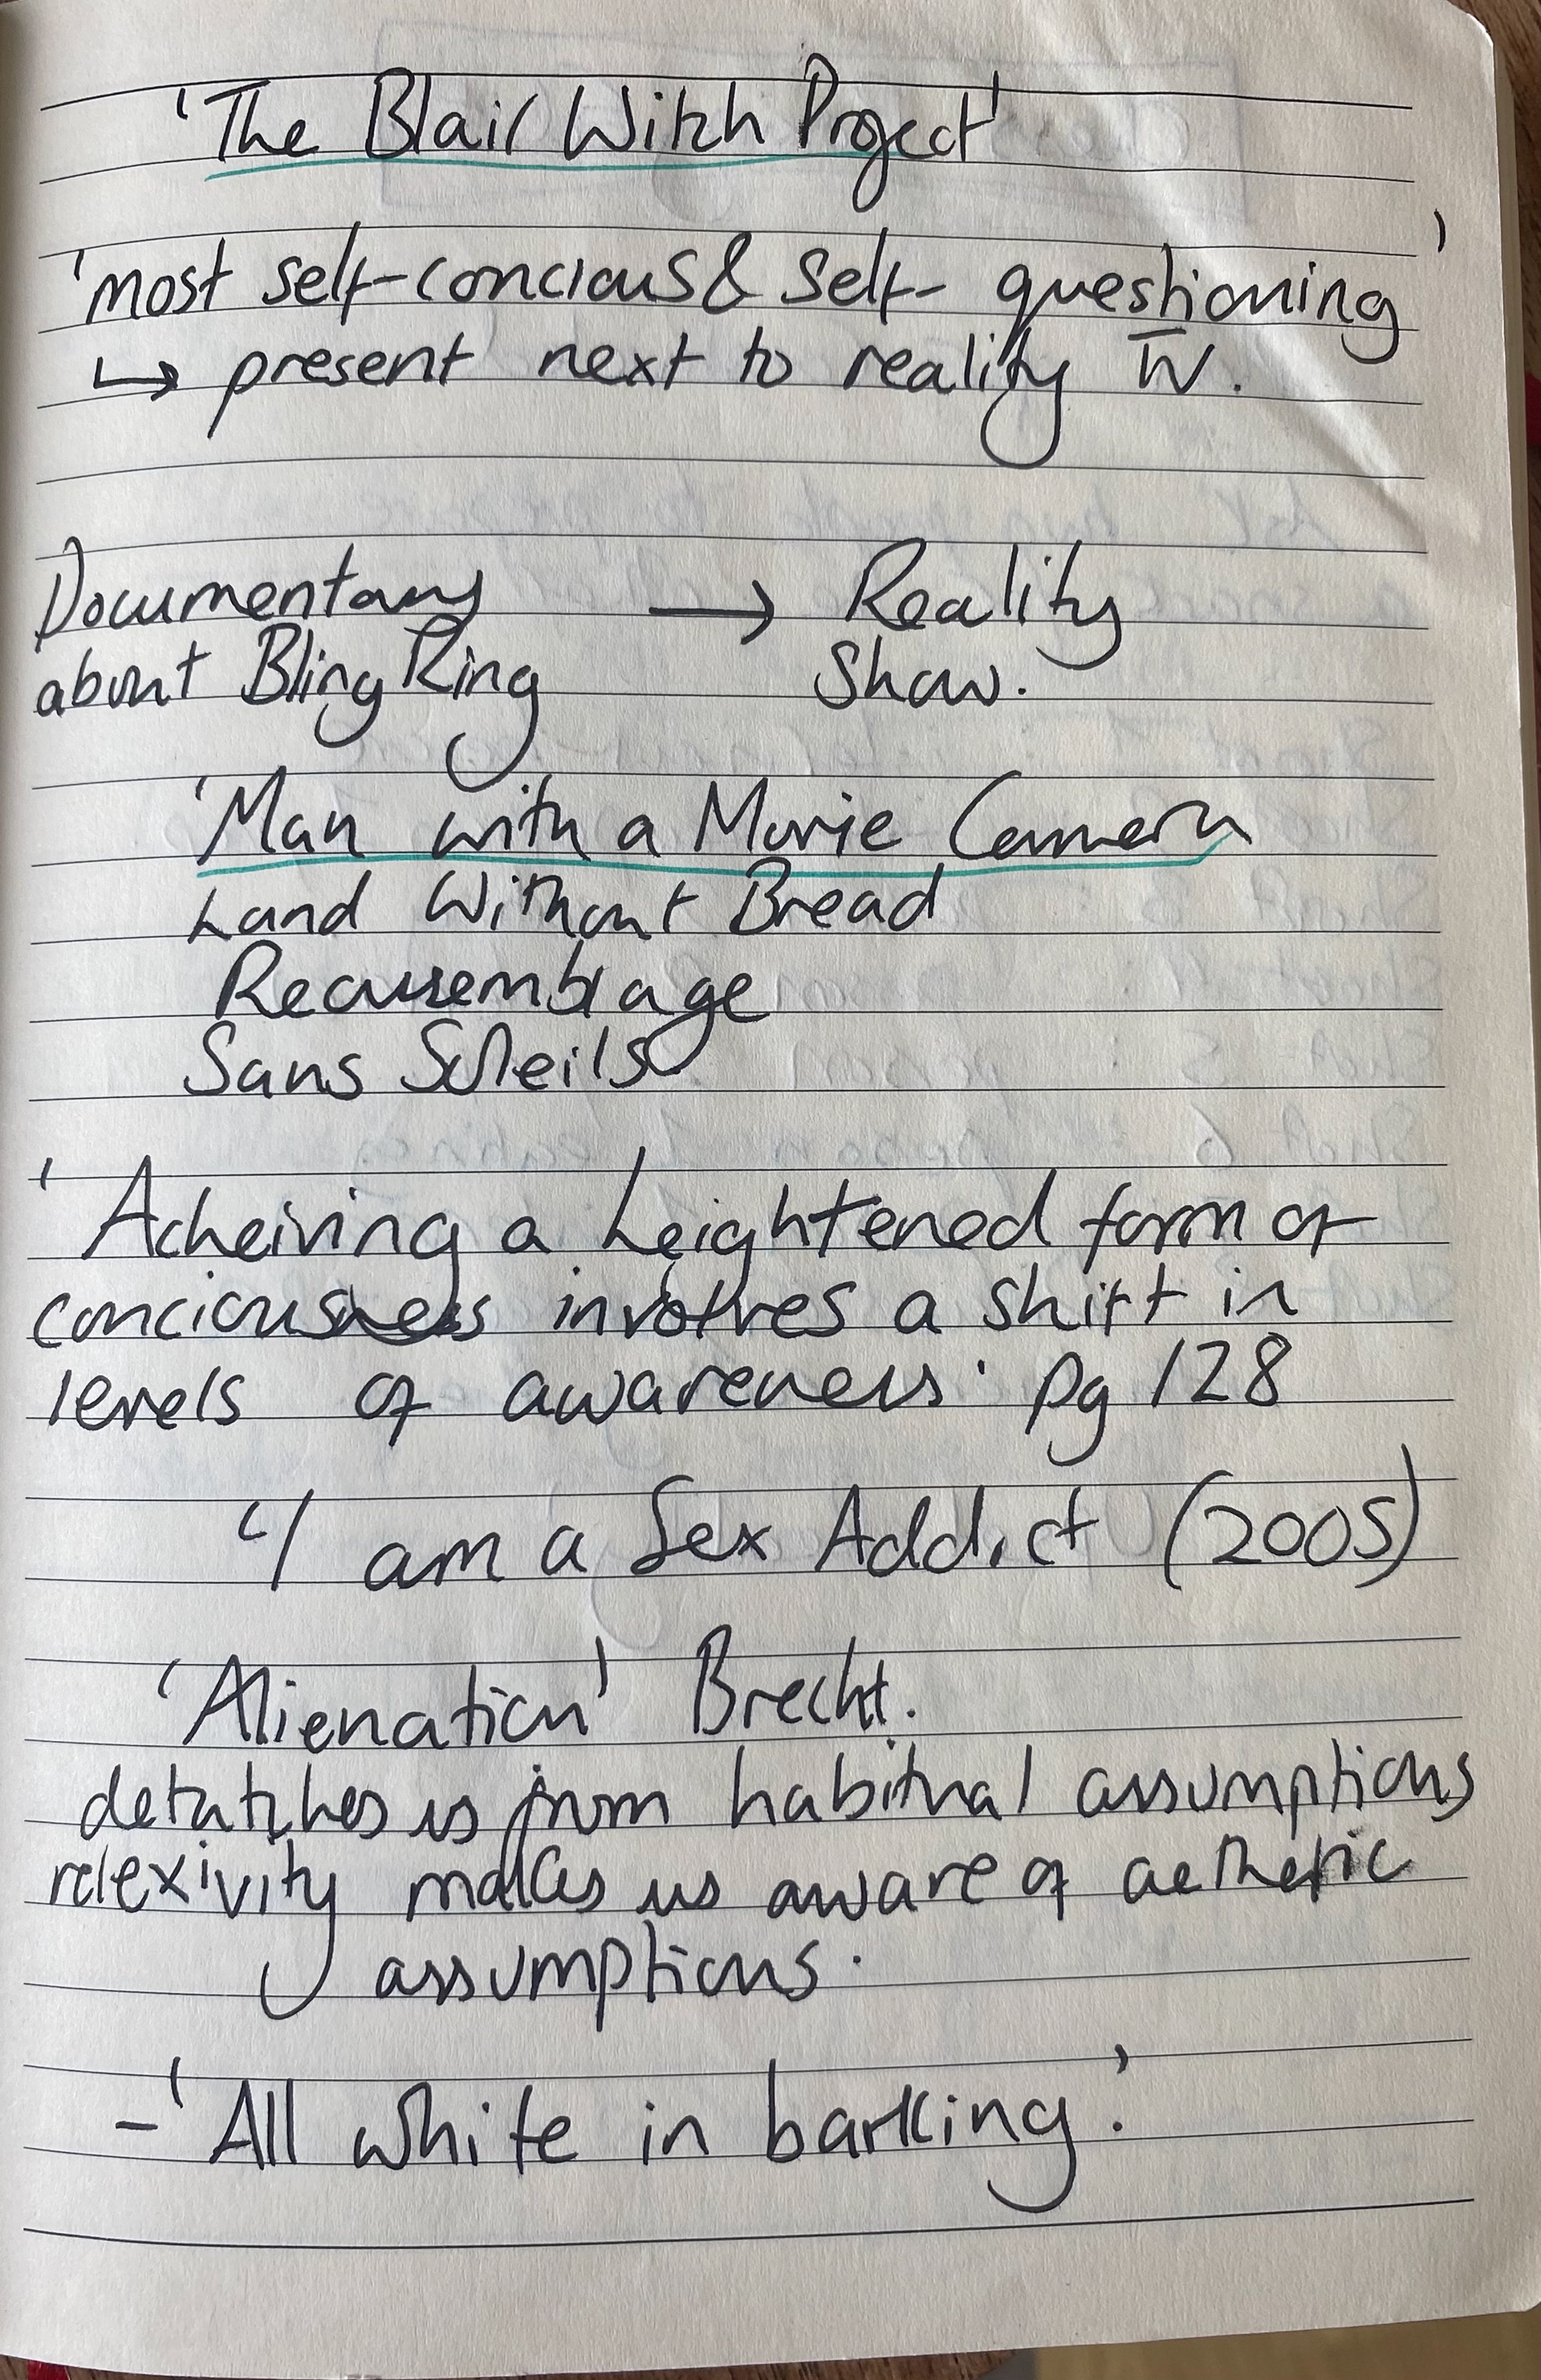 'The Blair Witch Project'
'most self-concious & self-questioning'
↳ present next to reality TV.
Documentary → Reality
about Bling Ring Show.
'Man with a Movie Camera
Land Without Bread
Reassemblage
Sans Soleils
'Acheiving a heightened form of
conciousness involves a shift in
levels of awareness' pg 128
'I am a Sex Addict (2005)
'Alienation' Brecht.
detatches us from habitual assumptions
relexivity makes us aware of aethetic
assumptions.
- 'All white in barking.'